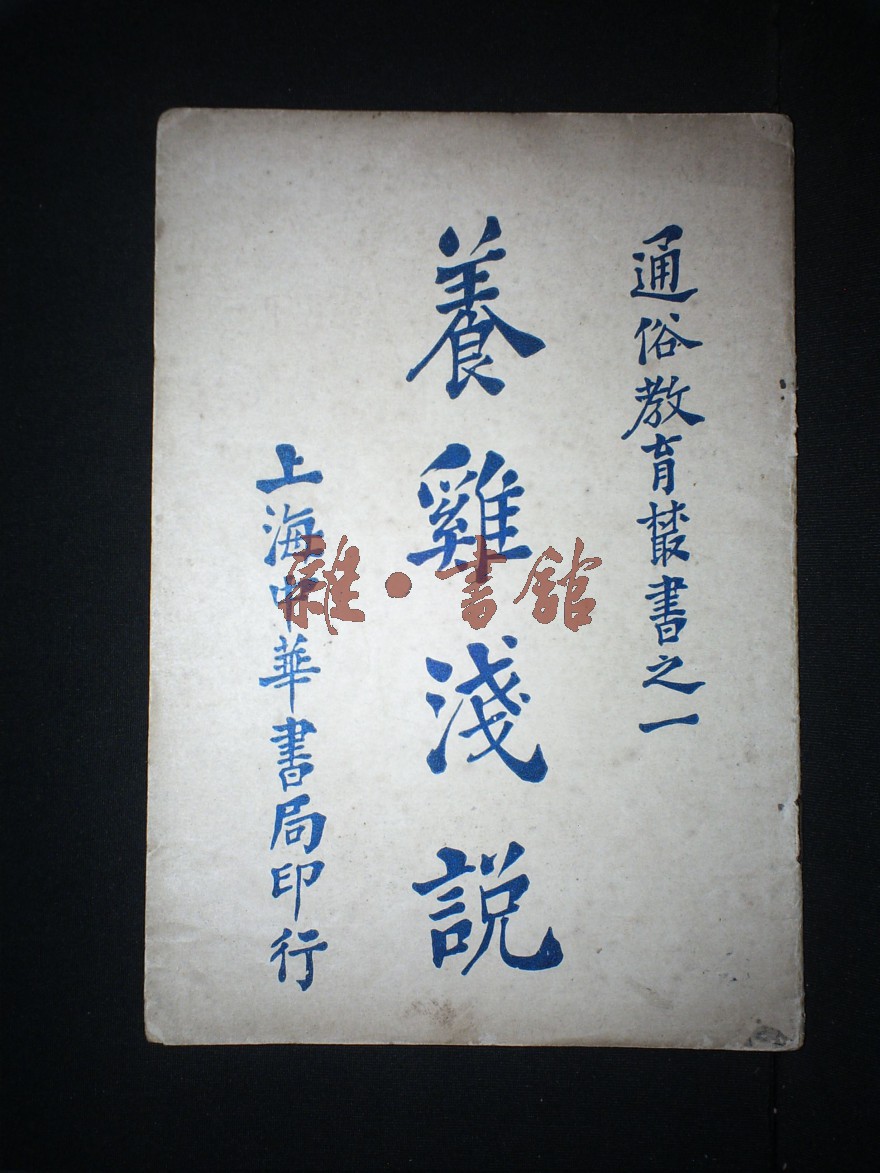 通俗教育叢書之一
養雞淺説
上海中華書局印行
雜·書館